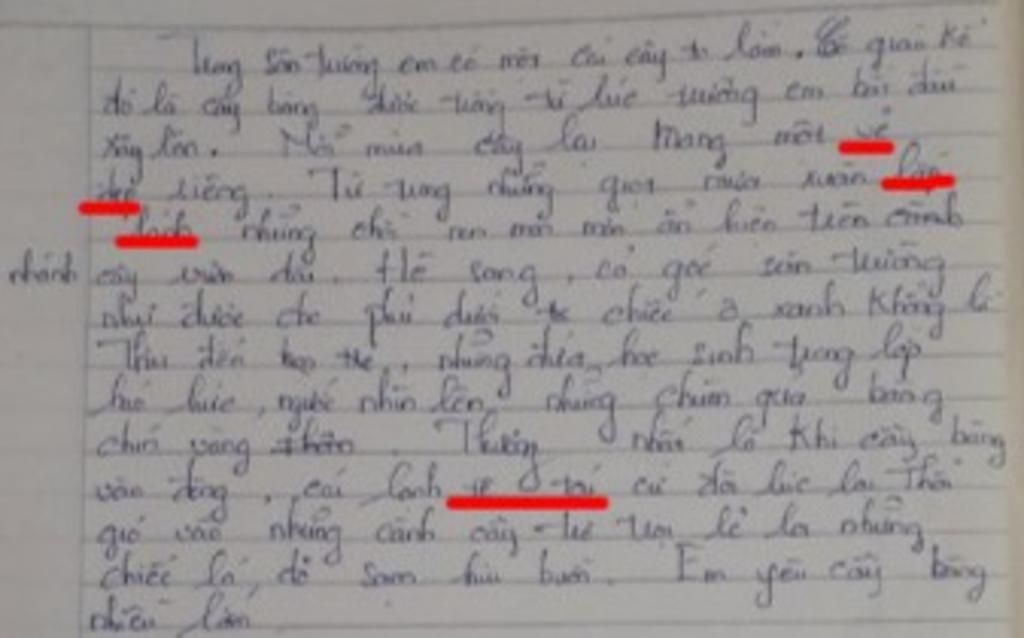 Trong sân trường em có một cái cây to lắm. Cô giáo kể
đó là cây bàng được trồng từ lúc trường em bắt đầu
xây lên. Mỗi mùa cây lại mang một vẻ
đẹp riêng. Từ trong những giọt mưa xuân lấp
lánh những chồi non mơn mởn ẩn hiện trên cành
nhánh cây vươn dài. Hè sang, cả góc sân trường
như được che phủ dưới chiếc ô xanh khổng lồ
Thu đến, những đứa học sinh trong lớp
háo hức, ngước nhìn lên những chùm quả bàng
chín vàng. Thương nhất là khi cây bàng
vào đông, cái lạnh tê tái cứ đôi lúc lại thổi
gió vào những cành cây trơ trụi lẻ loi những
chiếc lá đỏ sam hiu buồn. Em yêu cây bàng
nhiều lắm